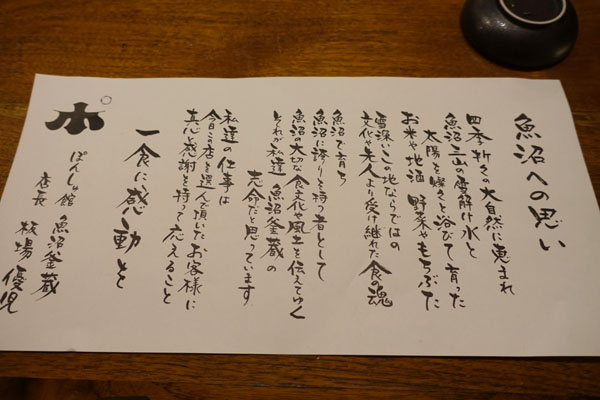 魚沼への思い
四季折々の大自然に恵まれ
魚沼三山の雪解け水と
太陽を燦々と浴びて育った
お米や地酒 野菜やもちぶた
雪深いこの地ならではの
文化や先人より受け継れた食の魂
魚沼で育ち
魚沼に誇りを持つ者として
魚沼の大切な食文化や風土を伝えてゆく
それが私達 魚沼釜蔵の
売命だと思っています
私達の仕事は
今日この店を選んで頂いたお客様に
真心と感謝を持って応えること
一食に感動を
ぽんしゅ館 魚沼釜蔵
店長 板場 優児